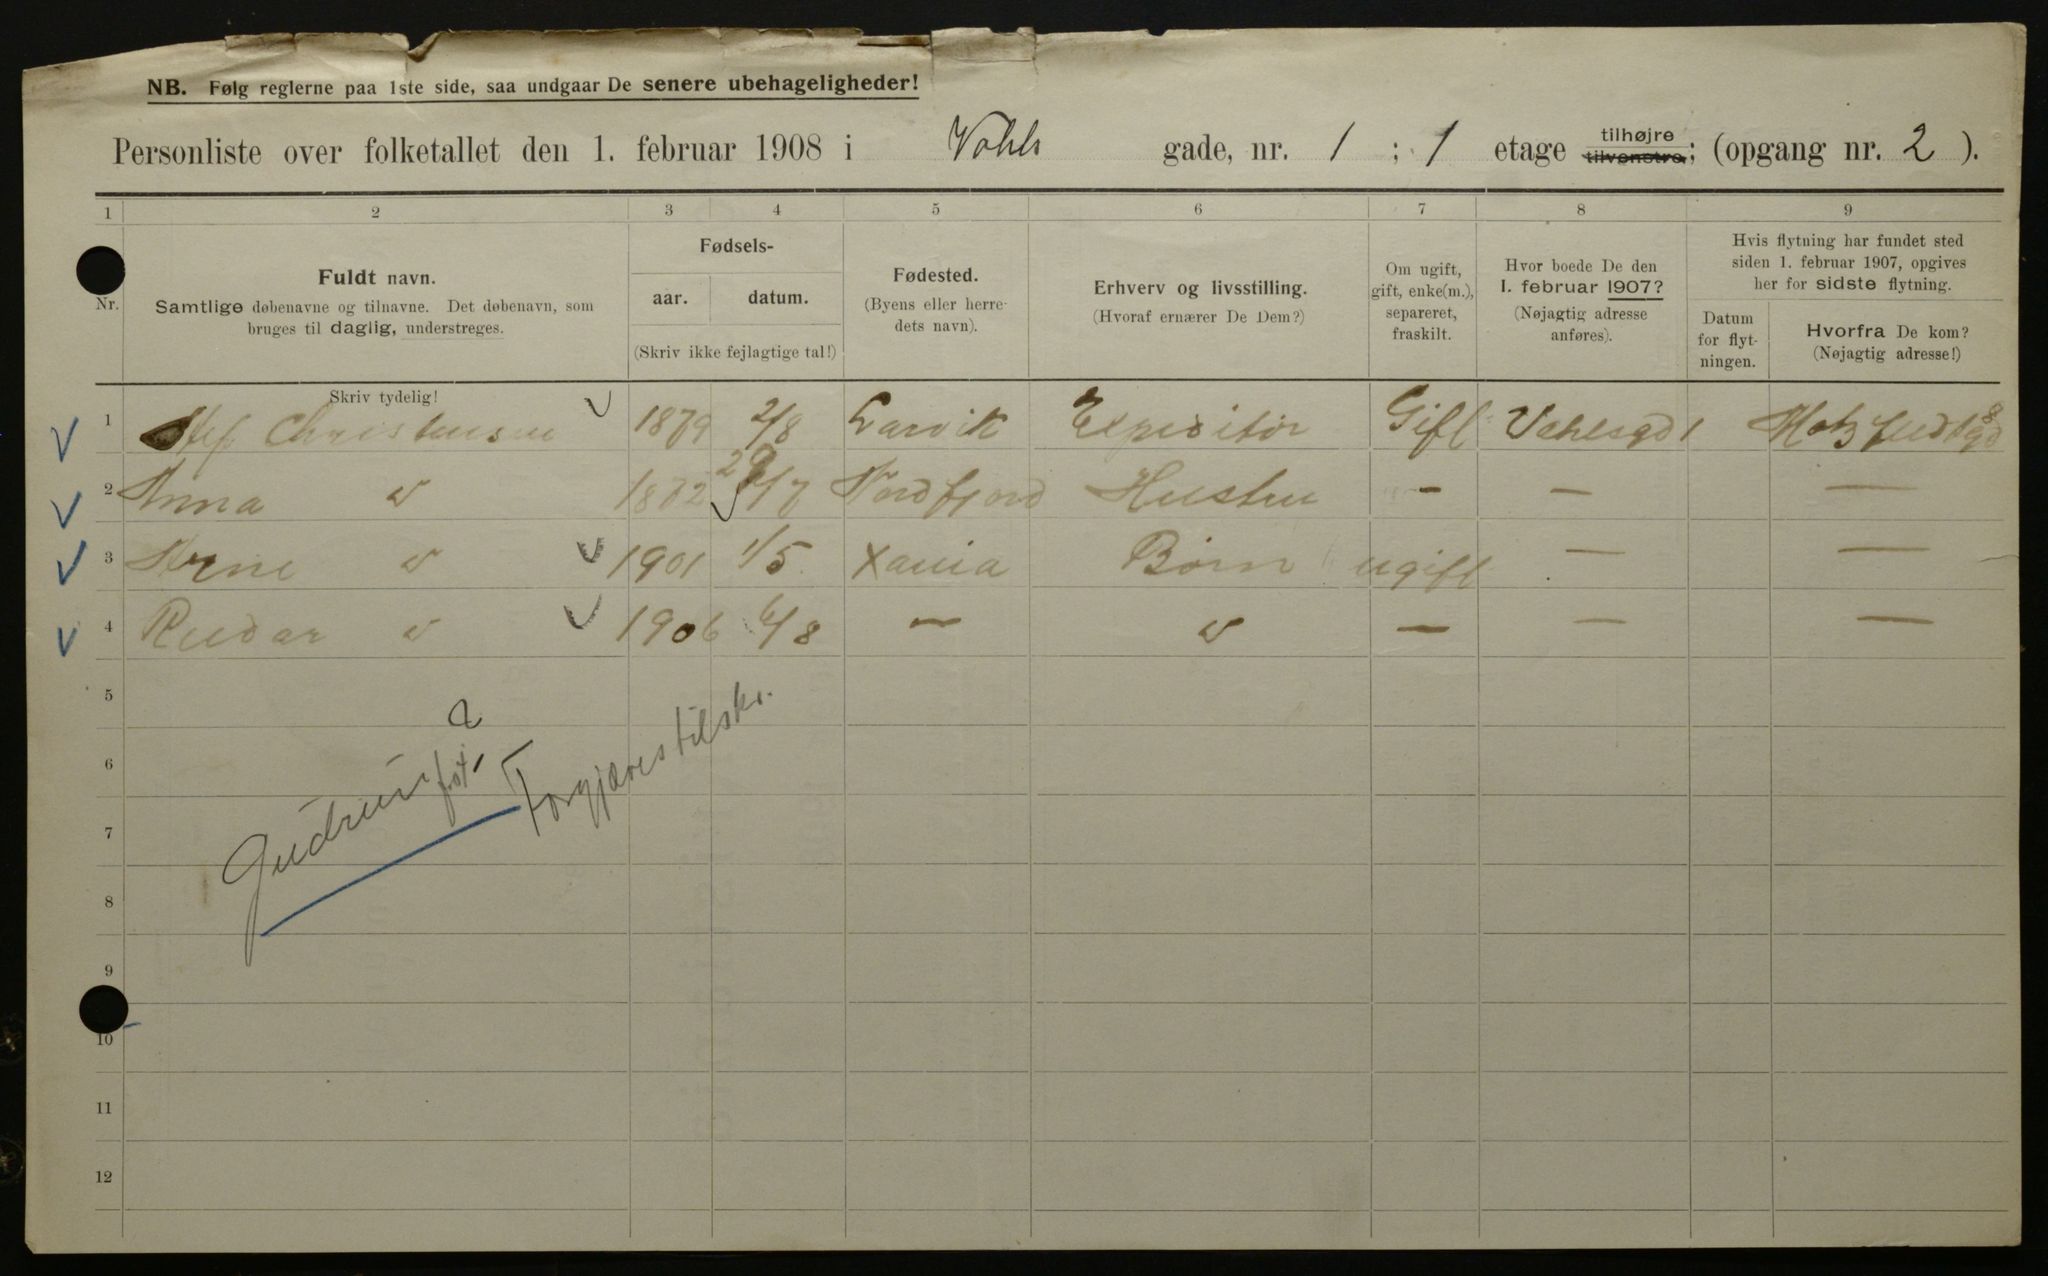 NB. Følg reglerne paa 1ste side, saa undgaar De senere ubehageligheder!
Personliste over folketallet den 1. februar 1908 i Vahls gade, nr. 1 ; 1 etage tilhøjre tilvenstre; (opgang nr. 2 ).
1 2 3 4 5 6 7 8 9
Nr.
Fuldt navn.
Samtlige døbenavne og tilnavne. Det døbenavn, som
bruges til daglig, understreges.
Fødsels-
aar. datum.
(Skriv ikke fejlagtige tal!)
Fødested.
(Byens eller herre-
dets navn).
Erhverv og livsstilling.
(Hvoraf ernærer De Dem?)
Om ugift,
gift, enke(m.),
separeret,
fraskilt.
Hvor boede De den
1. februar 1907?
(Nøjagtig adresse
anføres).
Hvis flytning har fundet sted
siden 1. februar 1907, opgives
her for sidste flytning.
Datum
for flyt-
ningen.
Hvorfra De kom?
(Nøjagtig adresse!)
Skriv tydelig!
1 Christensen 1879 2/8 Larvik Gift Vahlsgd 1
2 Anna 1872 /7 Nordfjord Hustru - — —
3 Arne 1901 1/5 Xania Børn ugift — —
4 Reidar 1906 6/8 — — — —
5
6
7
8
9
10
11
12
Gudrun ?
Torgjærestilsk.